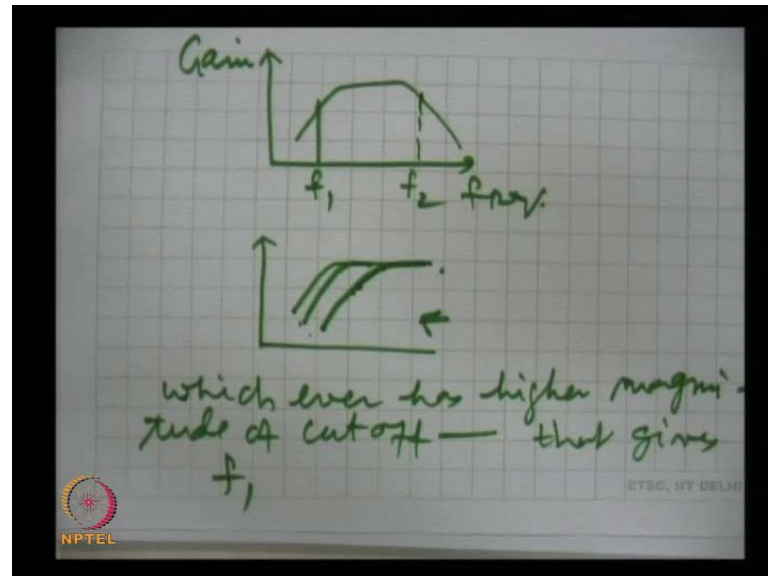 Gain
f1 f2 freq.
which ever has higher magni-
tude of cutoff — that gives
f1
ETSC, IIT DELHI
NPTEL